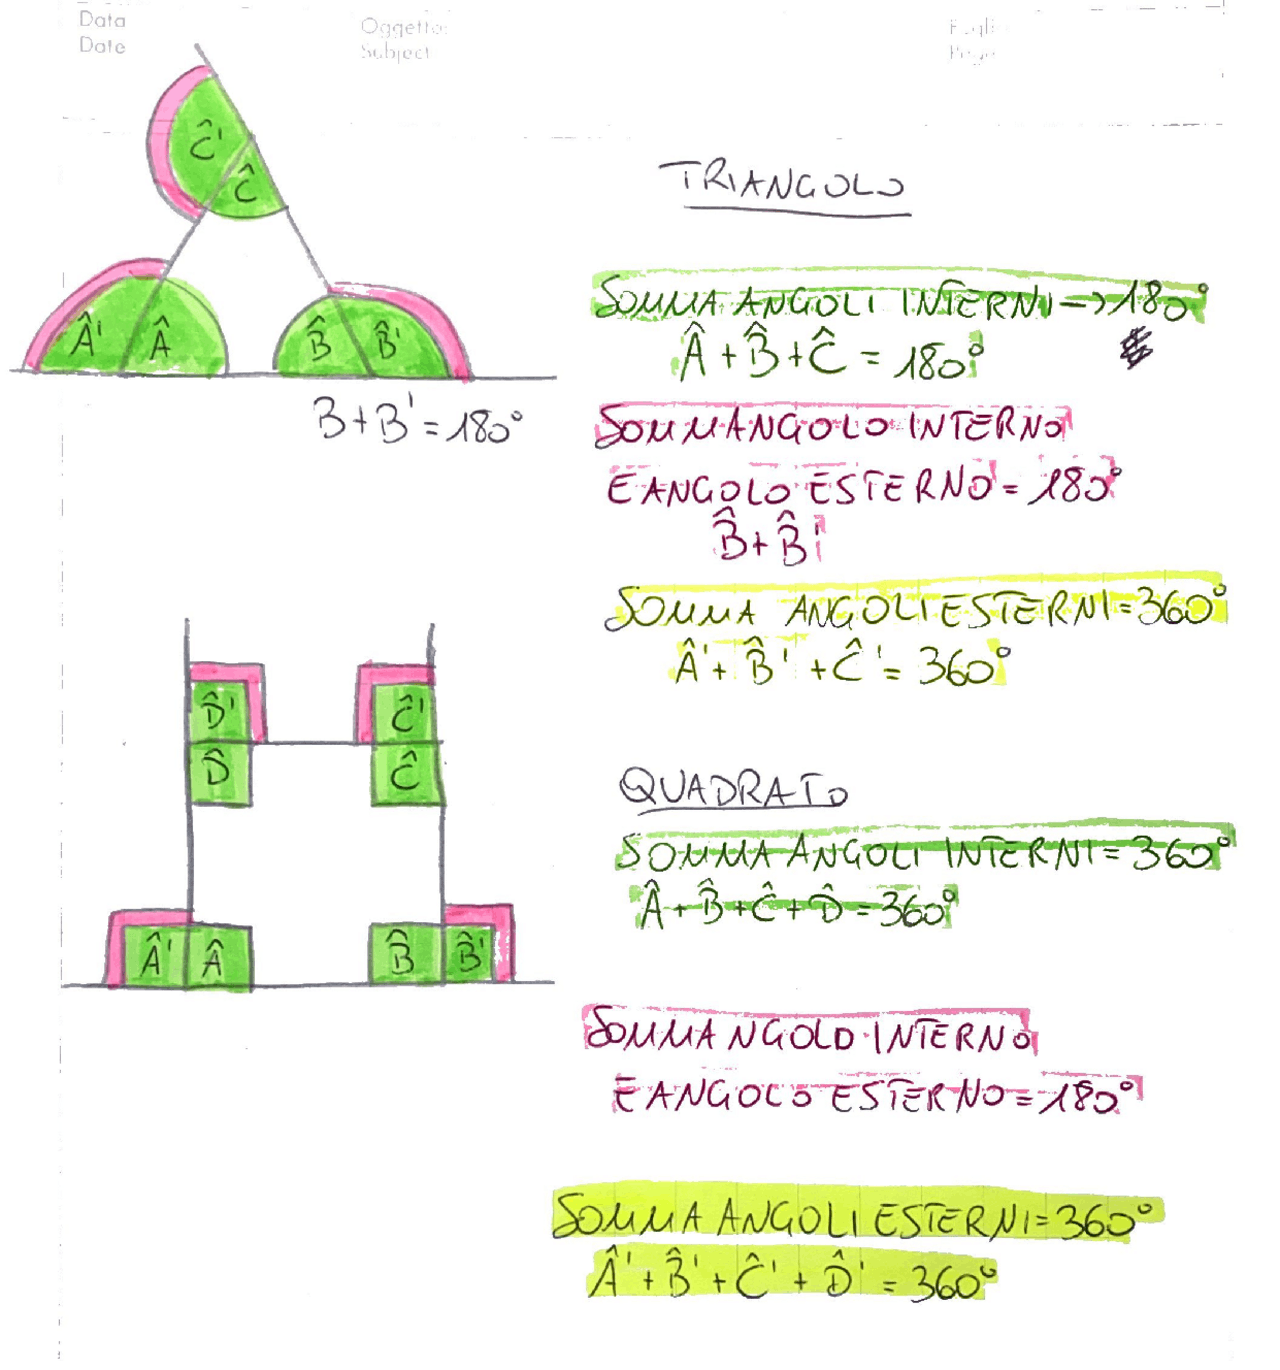 Data
Date
Oggetto:
Subject
Ĉ'
Ĉ
Â' Â
B̂ B̂'
B+B'=180°
TRIANGOLO
SOMMA ANGOLI INTERNI → 180°
Â+B̂+Ĉ = 180°
SOMMANGOLO INTERNO
E ANGOLO ESTERNO = 180°
B̂+B̂'
SOMMA ANGOLI ESTERNI = 360°
Â'+B̂'+Ĉ' = 360°
D̂' Ĉ'
D̂ Ĉ
Â' Â B̂ B̂'
QUADRATO
SOMMA ANGOLI INTERNI = 360°
Â+B̂+Ĉ+D̂ = 360°
SOMMANGOLO INTERNO
E ANGOLO ESTERNO = 180°
SOMMA ANGOLI ESTERNI = 360°
Â'+B̂'+Ĉ'+D̂' = 360°